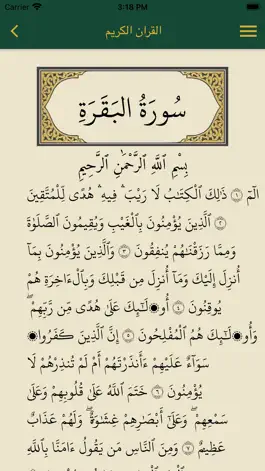 Carrier 3:18 PM
القران الكريم
سُورَةُ البَقَرَةِ
بِسْمِ ٱللَّهِ ٱلرَّحْمَٰنِ ٱلرَّحِيمِ
الٓمٓ ١ ذَٰلِكَ ٱلْكِتَٰبُ لَا رَيْبَ ۛ فِيهِ ۛ هُدًى لِّلْمُتَّقِينَ
٢ ٱلَّذِينَ يُؤْمِنُونَ بِٱلْغَيْبِ وَيُقِيمُونَ ٱلصَّلَوٰةَ
وَمِمَّا رَزَقْنَٰهُمْ يُنفِقُونَ ٣ وَٱلَّذِينَ يُؤْمِنُونَ بِمَآ
أُنزِلَ إِلَيْكَ وَمَآ أُنزِلَ مِن قَبْلِكَ وَبِٱلْءَاخِرَةِ هُمْ
يُوقِنُونَ ٤ أُو۟لَٰٓئِكَ عَلَىٰ هُدًى مِّن رَّبِّهِمْ ۖ
وَأُو۟لَٰٓئِكَ هُمُ ٱلْمُفْلِحُونَ ٥ إِنَّ ٱلَّذِينَ كَفَرُوا۟
سَوَآءٌ عَلَيْهِمْ ءَأَنذَرْتَهُمْ أَمْ لَمْ تُنذِرْهُمْ لَا
يُؤْمِنُونَ ٦ خَتَمَ ٱللَّهُ عَلَىٰ قُلُوبِهِمْ وَعَلَىٰ
سَمْعِهِمْ ۖ وَعَلَىٰٓ أَبْصَٰرِهِمْ غِشَٰوَةٌ ۖ وَلَهُمْ عَذَابٌ
عَظِيمٌ ٧ وَمِنَ ٱلنَّاسِ مَن يَقُولُ ءَامَنَّا بِٱللَّهِ